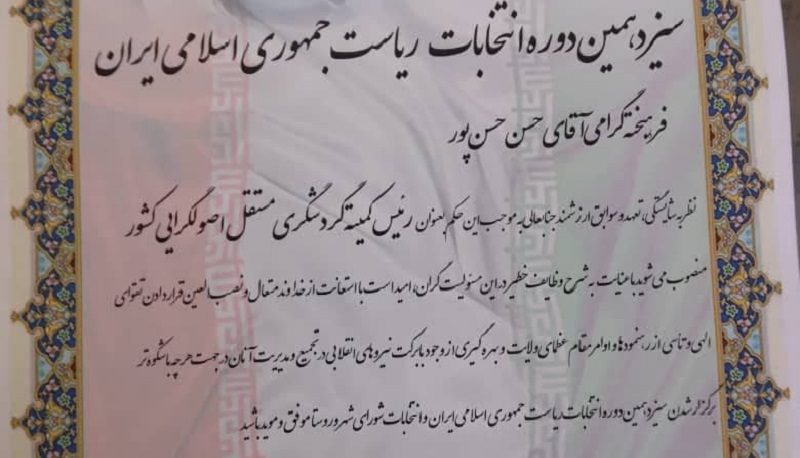 سیزدهمین دوره انتخابات ریاست جمهوری اسلامی ایران
فرهیخته گرامی آقای حسن حسن پور
نظر به شایستگی، تعهد و سوابق ارزشمند جنابعالی به موجب این حکم بعنوان رئیس کمیته گردشگری مستقل اصولگرایی کشور
منصوب می شوید با عنایت به شرح وظایف خطیر در این مسئولیت گران، امید است با استعانت از خداوند متعال و نصب العین قرار دادن تقوای
الهی و تأسی از رهنمودها و اوامر مقام عظمای ولایت و بهره گیری از وجود بابرکت نیروهای انقلابی در تجمیع و مدیریت آنان در جهت هر چه باشکوه تر
برگزار شدن سیزدهمین دوره انتخابات ریاست جمهوری اسلامی ایران و انتخابات شورای شهر و روستا موفق و موید باشید